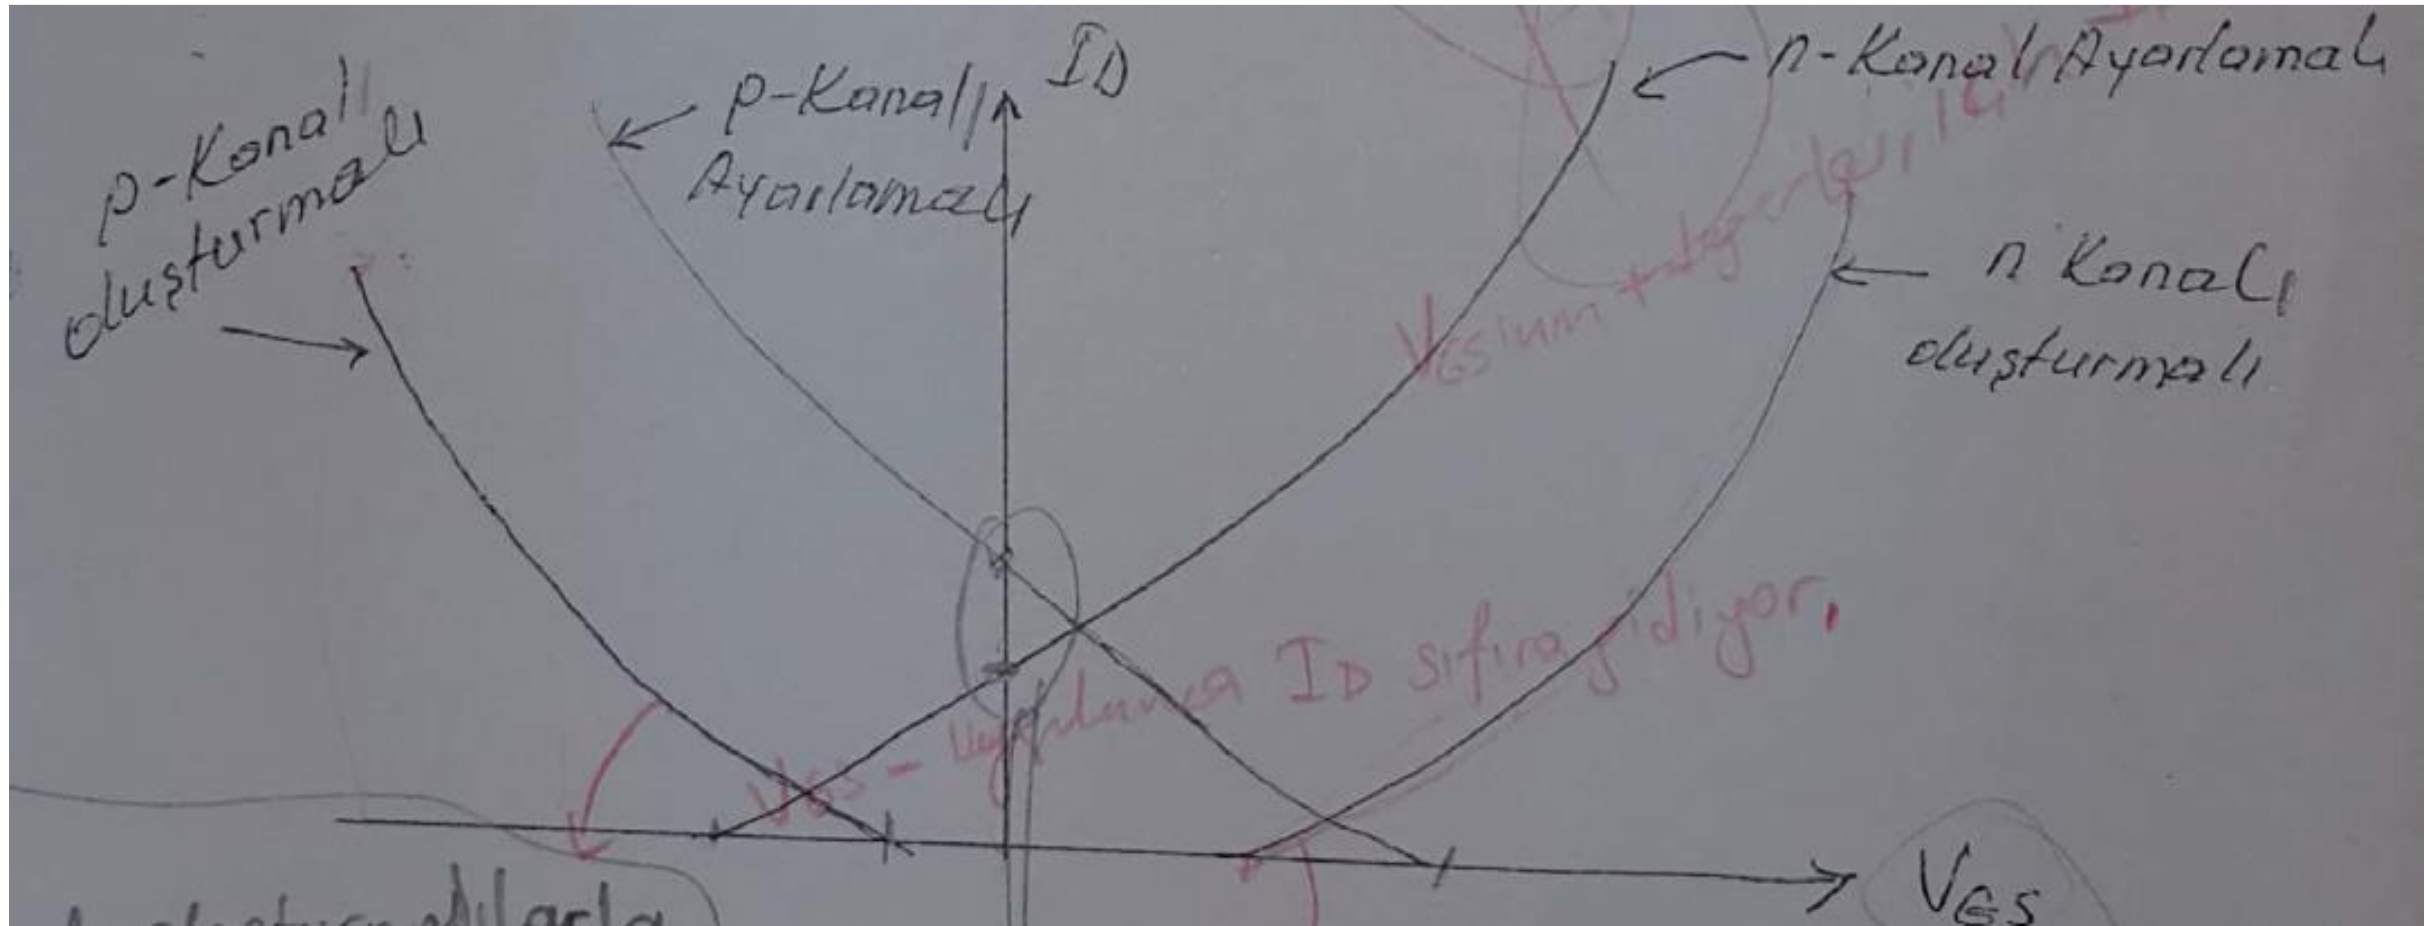 p-Kanallı
oluşturmalı
p-Kanallı
Ayarlamalı
ID
n-Kanal Ayarlamalı
n Kanallı
oluşturmalı
VGS'nin + değerleri
VGS - uygulanınca ID sıfıra gidiyor.
VGS